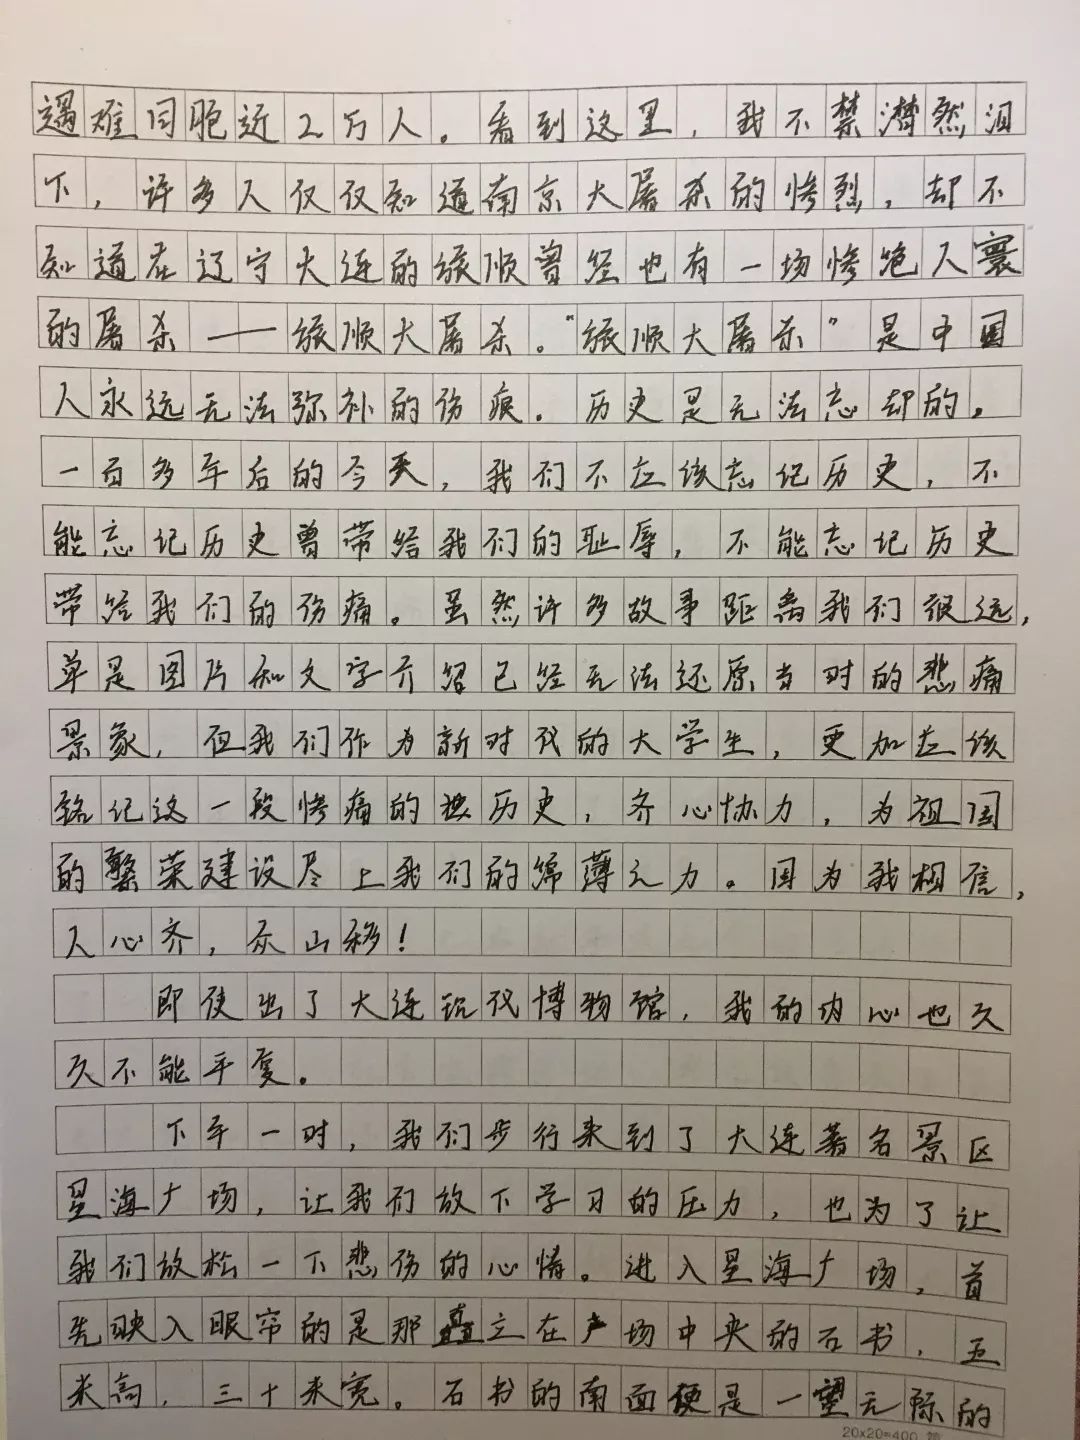 遇难同胞近2万人。看到这里，我不禁潸然泪
下，许多人仅仅知道南京大屠杀的惨烈，却不
知道在辽宁大连的旅顺曾经也有一场惨绝人寰
的屠杀——旅顺大屠杀。“旅顺大屠杀”是中国
人永远无法弥补的伤痕。历史是无法忘却的。
一百多年后的今天，我们不应该忘记历史，不
能忘记历史曾带给我们的耻辱，不能忘记历史
带给我们的伤痛。虽然许多故事距离我们很远，
单是图片和文字介绍已经无法还原当时的悲痛
景象，但我们作为新时代的大学生，更加应该
铭记这一段惨痛的历史，齐心协力，为祖国
的繁荣建设尽上我们的绵薄之力。因为我相信，
人心齐，泰山移！
即使出了大连现代博物馆，我的内心也久
久不能平复。
下午一时，我们步行来到了大连著名景区
星海广场，让我们放下学习的压力，也为了让
我们放松一下悲伤的心情。进入星海广场，首
先映入眼帘的是那矗立在广场中央的石书，五
米高，三十来宽。石书的南面便是一望无际的
20x20=400